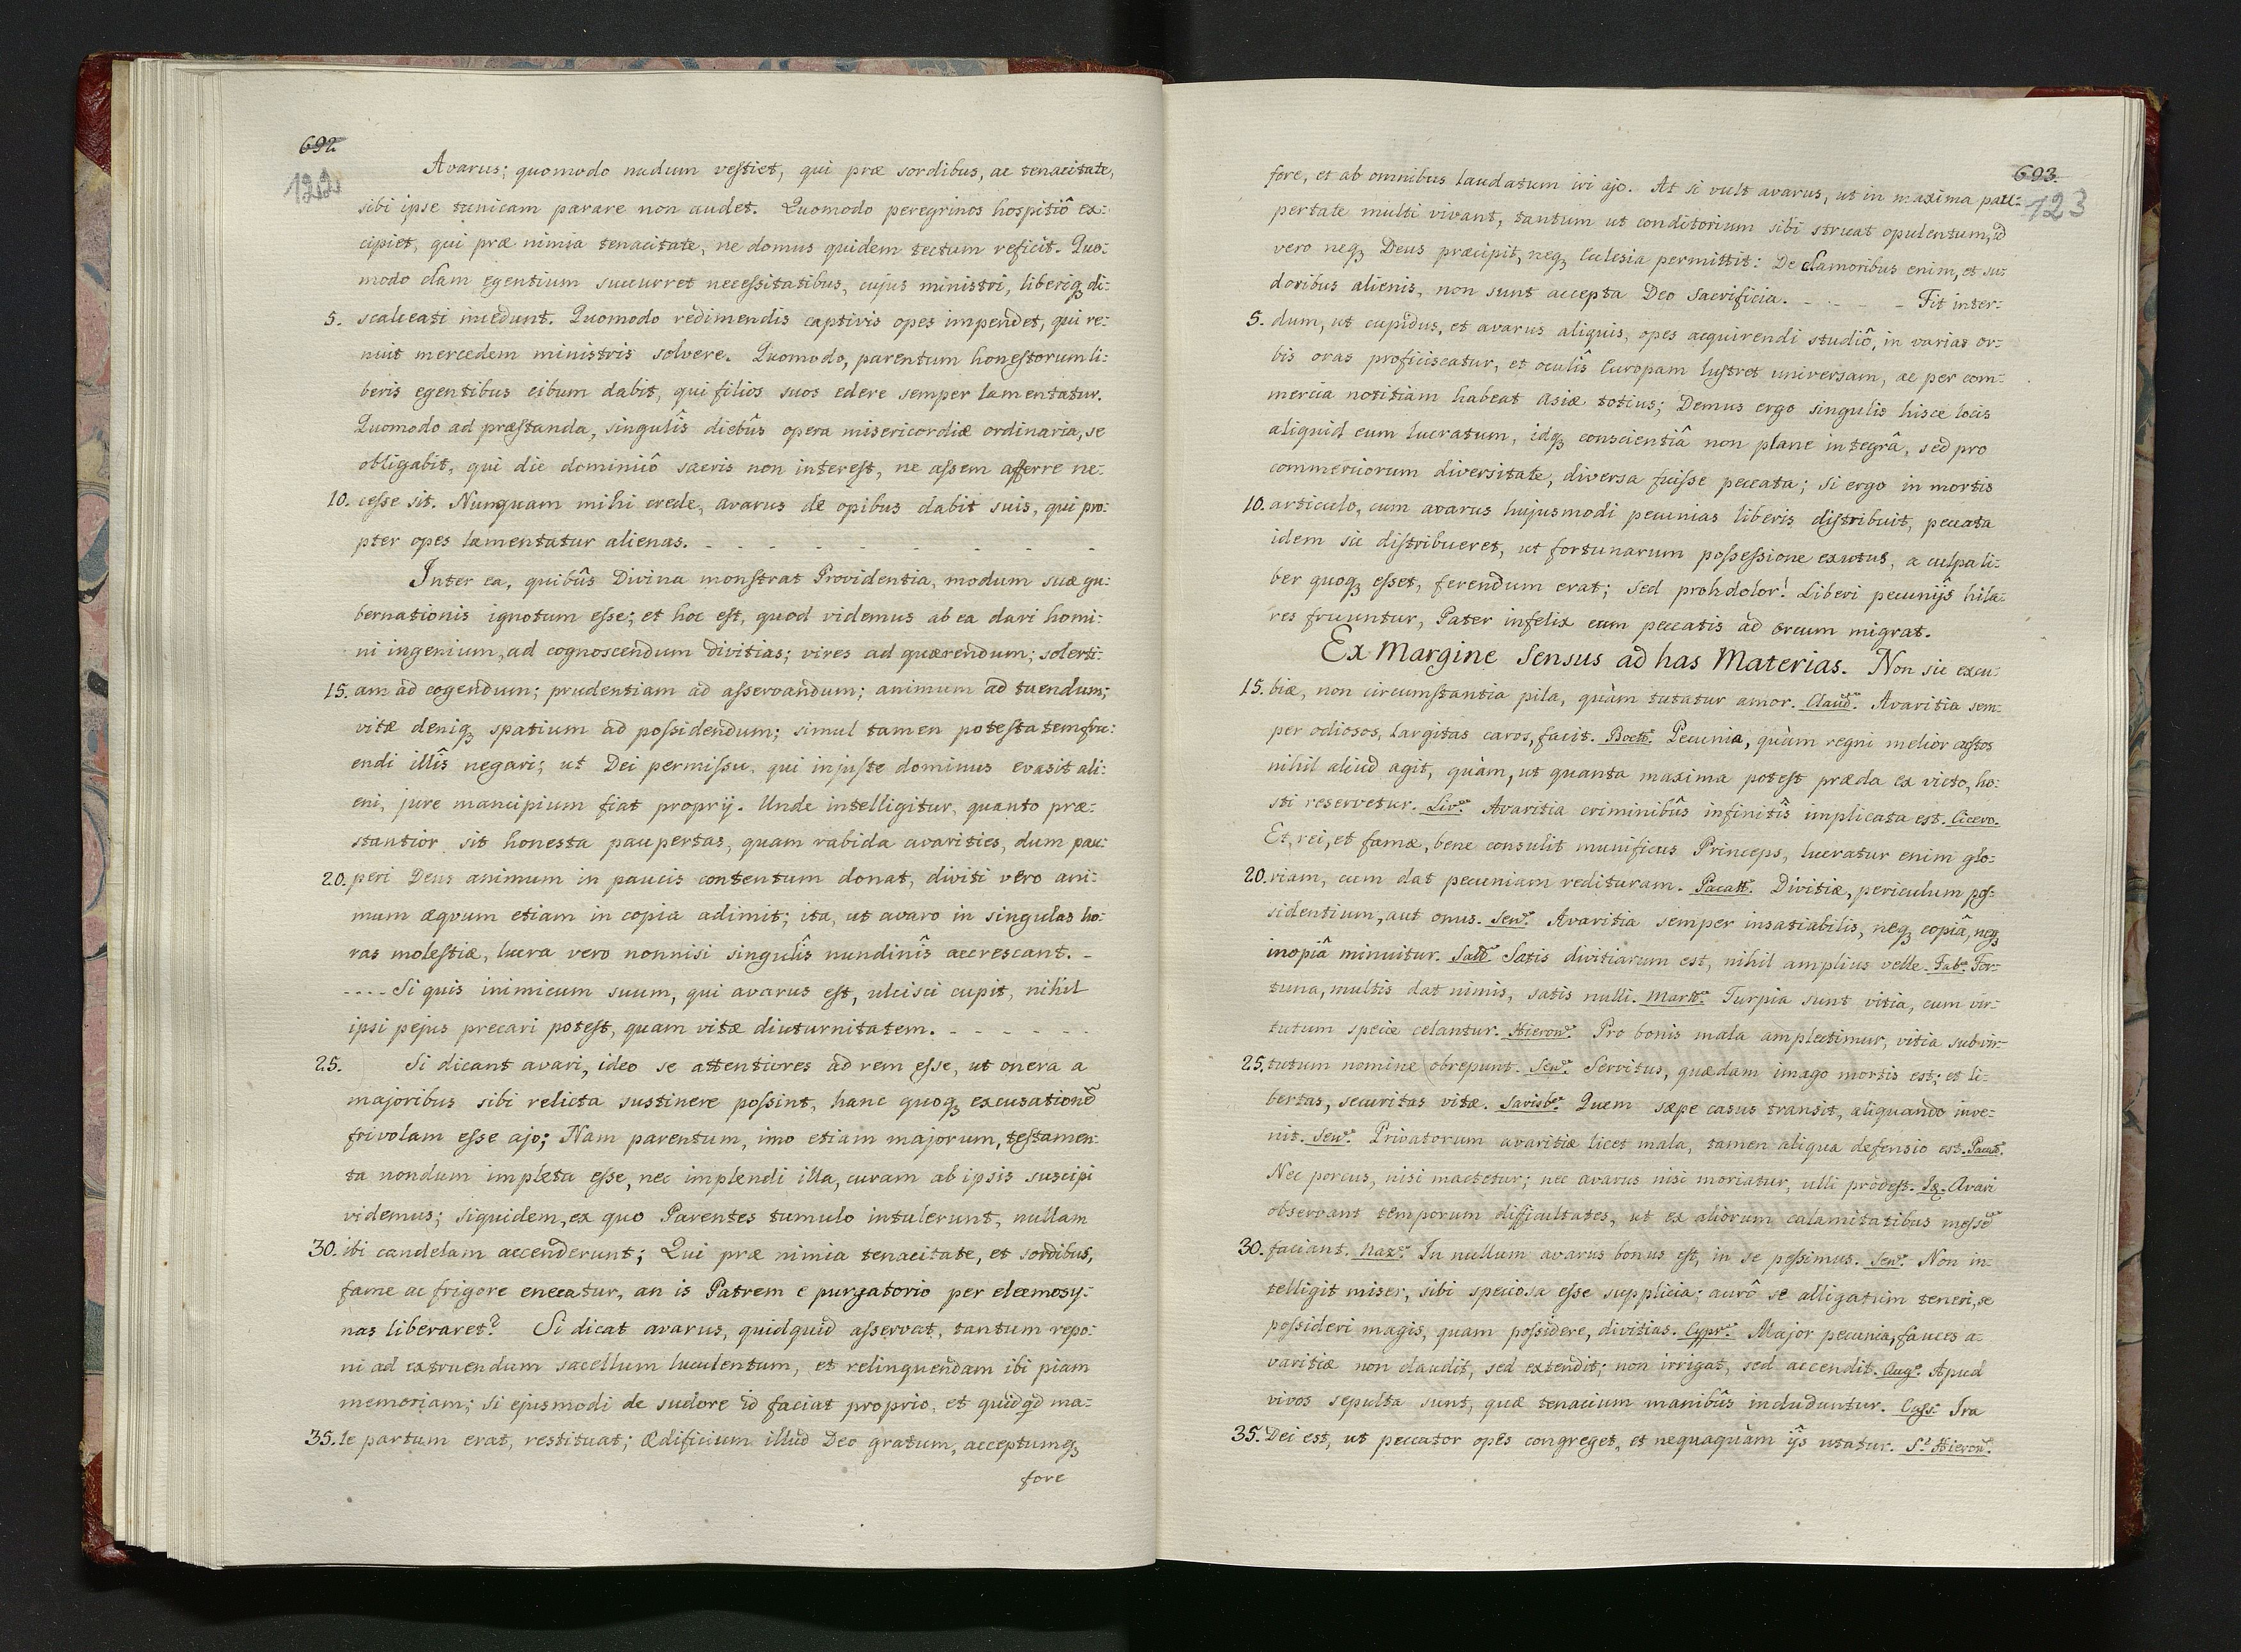 692
122
Avarus; quomodo nudum vestiet, qui præ sordibus, ac tenacitate,
sibi ipse tunicam parare non audet. Quomodo peregrinos hospitiô ex:
cipiet, qui præ nimia tenacitate, ne domus quidem tectum reficit. Quo:
modo clam egentium succurret necessitatibus, cujus ministri, liberiqꝫ di:
5. scalceati incedunt. Quomodo redimendis captivis opes impendet, qui re:
nuit mercedem ministris solvere. Quomodo, parentum honestorum li:
beris egentibus cibum dabit, qui filios suos edere semper lamentatur.
Quomodo ad præstanda, singulîs diebûs opera misericordiæ ordinaria, se
obligabit, qui die dominicô sacris non interest, ne assem afferre ne:
10. cesse sit. Nunquam mihi crede, avarus de opibus dabit suis, qui pro:
pter opes lamentatur alienas. - - - - - - - -
Inter ea, quibûs Divina monstrat Providentia, modum suæ gu:
bernationis ignotum esse; et hoc est, quod videmus ab ea dari homi:
ni ingenium, ad cognoscendum divitias; vires ad quærendum; solerti:
15. am ad cogendum; prudentiam ad asservandum; animum ad tuendum;
vitæ deniqꝫ spatium ad possidendum; simul tamen potestatem fru:
endi illîs negari; ut Dei permissu, qui injuste dominus evasit ali:
eni, jure mancipium fiat proprij. Unde intelligitur, quanto præ:
stantior sit honesta paupertas, quam rabida avarities, dum pau:
20. peri Deus animum in paucis contentum donat, diviti vero ani:
mum æqvum etiam in copia adimit; ita, ut avaro in singulas ho:
ras molestiæ, lucra vero nonnisi singulîs nundinîs accrescant. -
---- Si quis inimicum suum, qui avarus est, ulcisci cupit, nihil
ipsi pejus precari potest, quam vitæ diuturnitatem. - - - - - -
25. Si dicant avari, ideo se attentiores ad rem esse, ut onera a
majoribus sibi relicta sustinere possint, hanc quoqꝫ excusationẽ
frivolam esse ajo; Nam parentum, imo etiam majorum, testamen:
ta nondum impleta esse, nec implendi illa, curam ab ipsis suscipi
videmus; siquidem, ex quo Parentes tumulo intulerunt, nullam
30. ibi candelam accenderunt; Qui præ nimia tenacitate, et sordibus,
fame ac frigore enecatur, an is Patrem e purgatorio per eleemosy:
nas liberaret? Si dicat avarus, quidquid asservat, tantum repo:
ni ad extruendum sacellum luculentum, et relinquendam ibi piam
memoriam; si ejusmodi de sudore id faciat proprio, et quidqd ma:
35. le partum erat, restituat; ædificium illud Deo gratum, acceptumqꝫ
fore
693.
123
fore, et ab omnibus laudatum iri ajo. At si vult avarus, ut in maxima pau:
pertate multi vivant, tantum ut conditorium sibi struat opulentum, id
vero neqꝫ Deus præcipit, neqꝫ Ecclesia permittit: De clamoribus enim, et su:
doribus alienis, non sunt accepta Deo Sacrificia. - - - - - Fit inter:
5. dum, ut cupidus, et avarus aliquis, opes acquirendi studiô, in varias or:
bis oras proficiscatur, et oculîs Europam lustret universam, ac per com:
mercia notitiam habeat Asiæ totius; Demus ergo singulis hisce locis
aliquid eum lucratum, idqꝫ conscientiâ non plane integrâ, sed pro
commerciorum diversitate, diversa fuisse peccata; si ergo in mortis
10. articulo, cum avarus hujusmodi pecunias liberis distribuit, peccata
idem sic distribueret, ut fortunarum possessione exutus, a culpa li:
ber quoqꝫ esset, ferendum erat; sed proh dolor! Liberi pecunijs hila:
res fruuntur, Pater infelix cum peccatis ad orcum migrat.
Ex Margine Sensus ad has Materias. Non sic excu:
15. biæ, non circumstantia pila, quàm tutatur amor. Claud. Avaritia sem:
per odiosos, largitas caros, facit. Boeth. Pecunia, quàm regni melior custos
nihil aliud agit, quàm, ut quanta maxima potest præda ex victo, ho:
sti reservetur. Liv. Avaritia criminibûs infinitîs implicata est. Cicero.
Et, rei, et famæ, bene consulit munificus Princeps, lucratur enim glo:
20. riam, cum dat pecuniam redituram. Pacatt. Divitiæ, periculum pos:
sidentium, aut onus. Sen. Avaritia semper insatiabilis, neqꝫ copiâ, neqꝫ
inopiâ minuitur. Sall. Satis divitiarum est, nihil amplius velle. Fab. For:
tuna, multis dat nimis, satis nulli. Mart. Turpia sunt vitia, cum vir:
tutum specie celantur. Hieron. Pro bonis mala amplectimur, vitia sub vir:
25. tutum nomine obrepunt. Sen. Servitus, quædam imago mortis est; et li:
bertas, securitas vitæ. Sarisb. Quem sæpe casus transit, aliquando inve:
nit. Sen. Privatorum avaritiæ licet mala, tamen aliqua defensio est. Pacat.
Nec porcus, nisi mactetur; nec avarus nisi moriatur, ulli prodest. Avari
observant temporum difficultates, ut ex aliorum calamitatibus messẽ
30. faciant. Naz. In nullum avarus bonus est, in se pessimus. Sen. Non in:
telligit miser, sibi speciosa esse supplicia; aurô se alligatum teneri, se
possideri magis, quam possidere, divitias. Cypr. Major pecunia, fauces a:
varitiæ non claudit, sed extendit; non irrigat, sed accendit. Aug. Apud
vivos sepulta sunt, quæ tenacium manibûs induduntur. Cass. Ira
35. Dei est, ut peccator opes congreget, et nequaquàm ijs utatur. S. Hieron.